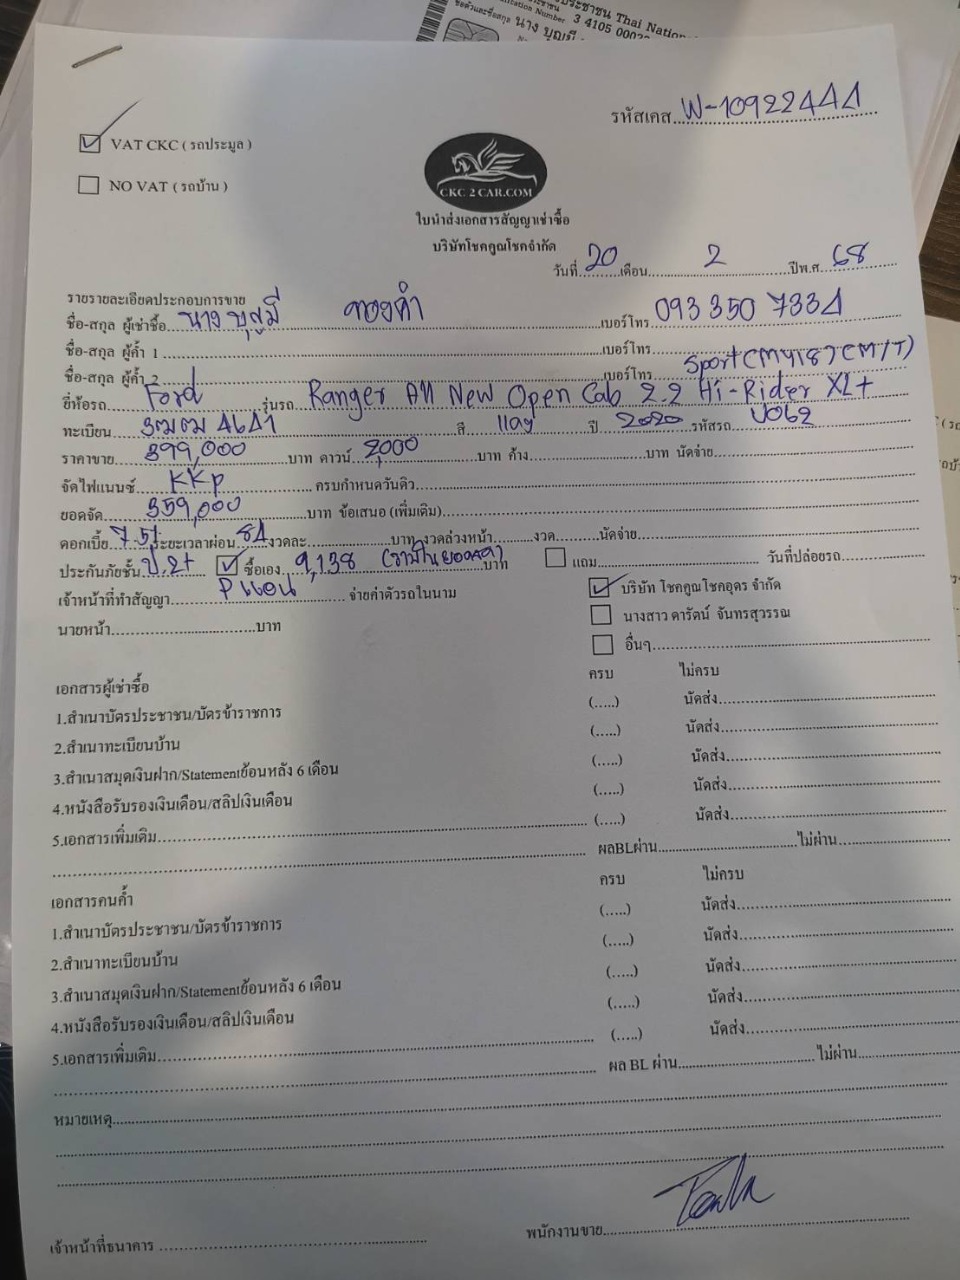 ประชาชน Thai Nation
ntation Number 3 4105 000
ชื่อตัวและชื่อสกุล นาง บุญมี
รหัสเคส W-10922441
☑ VAT CKC ( รถประมูล )
☐ NO VAT ( รถบ้าน )
CKC 2 CAR.COM
ใบนำส่งเอกสารสัญญาเช่าซื้อ
บริษัทโชคคูณโชคจำกัด
วันที่ 20 เดือน 2 ปีพ.ศ. 68
รายรายละเอียดประกอบการขาย
ชื่อ-สกุล ผู้เช่าซื้อ นาง บุญมี ทองคำ เบอร์โทร 093 350 7334
ชื่อ-สกุล ผู้ค้ำ 1 เบอร์โทร
ชื่อ-สกุล ผู้ค้ำ 2 เบอร์โทร
ยี่ห้อรถ Ford รุ่นรถ Ranger All New Open Cab 2.2 Hi-Rider XL+ Sport (MY18) (M/T)
ทะเบียน 3ฒฒ 4641 สี แดง ปี 2020 รหัสรถ U062
ราคาขาย 399,000 บาท ดาวน์ 2,000 บาท ค้าง บาท นัดจ่าย
จัดไฟแนนซ์ KKP ครบกำหนดวันคิว
ยอดจัด 359,000 บาท ข้อเสนอ (เพิ่มเติม)
ดอกเบี้ย 7.51 ระยะเวลาผ่อน 84 งวดละ บาท งวดล่วงหน้า งวด นัดจ่าย
ประกันภัยชั้น ป.2+ ☑ ซื้อเอง 9,138 (รวมในยอดจัด) บาท ☐ แถม วันที่ปล่อยรถ
เจ้าหน้าที่ทำสัญญา P แอน จ่ายค่าตัวรถในนาม ☑ บริษัท โชคคูณโชคอุดร จำกัด
☐ นางสาว ดารัตน์ จันทรสุวรรณ
นายหน้า บาท ☐ อื่นๆ
เอกสารผู้เช่าซื้อ ครบ ไม่ครบ
1.สำเนาบัตรประชาชน/บัตรข้าราชการ (.....) นัดส่ง
2.สำเนาทะเบียนบ้าน (.....) นัดส่ง
3.สำเนาสมุดเงินฝาก/Statementย้อนหลัง 6 เดือน (.....) นัดส่ง
4.หนังสือรับรองเงินเดือน/สลิปเงินเดือน (.....) นัดส่ง
5.เอกสารเพิ่มเติม (.....) นัดส่ง
ผลBLผ่าน ไม่ผ่าน
เอกสารคนค้ำ ครบ ไม่ครบ
1.สำเนาบัตรประชาชน/บัตรข้าราชการ (.....) นัดส่ง
2.สำเนาทะเบียนบ้าน (.....) นัดส่ง
3.สำเนาสมุดเงินฝาก/Statementย้อนหลัง 6 เดือน (.....) นัดส่ง
4.หนังสือรับรองเงินเดือน/สลิปเงินเดือน (.....) นัดส่ง
5.เอกสารเพิ่มเติม (.....) นัดส่ง
ผล BL ผ่าน ไม่ผ่าน
หมายเหตุ
เจ้าหน้าที่ธนาคาร พนักงานขาย